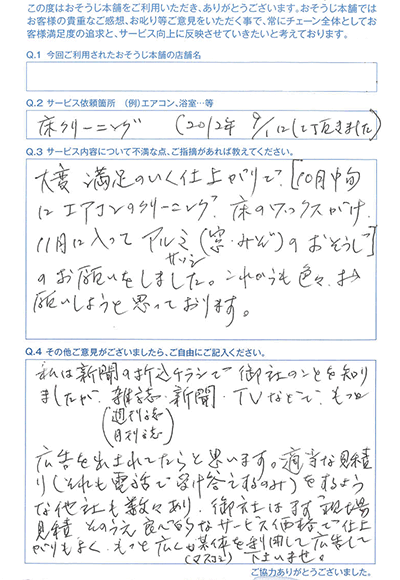 この度はおそうじ本舗をご利用いただき、ありがとうございます。おそうじ本舗では
お客様の貴重なご感想、お叱り等ご意見をいただく事で、常にチェーン全体としてお
客様満足度の追求と、サービス向上に反映させていきたいと考えております。
Q.1 今回ご利用されたおそうじ本舗の店舗名
Q.2 サービス依頼箇所 (例)エアコン、浴室…等
床クリーニング (2012年 9/12にして頂きました)
Q.3 サービス内容について不満な点、ご指摘があれば教えてください。
大変 満足のいく仕上がりで、[10月中旬
にエアコンのクリーニング、床のワックスがけ、
11月に入って アルミ(窓・みぞ)のおそうじ]
サッシ
のお願いをしました。これからも色々、お
願いしようと思っております。
Q.4 その他ご意見がございましたら、ご自由にご記入ください。
私は新聞の折込チラシで 御社のことを知り
ましたが、雑誌・新聞・TVなどで、もっと
(週刊誌
月刊誌)
広告を出されてたらと思います。適当な見積
り(それも電話で受け答えするのみ)をするよう
な他社も数々あり、御社はまず現場
見積 そのうえ良心的なサービス価格で仕上
がりもよく、もっと広く媒体を利用して広告して
(マスコミ) 下さいませ。
ご協力ありがとうございました。